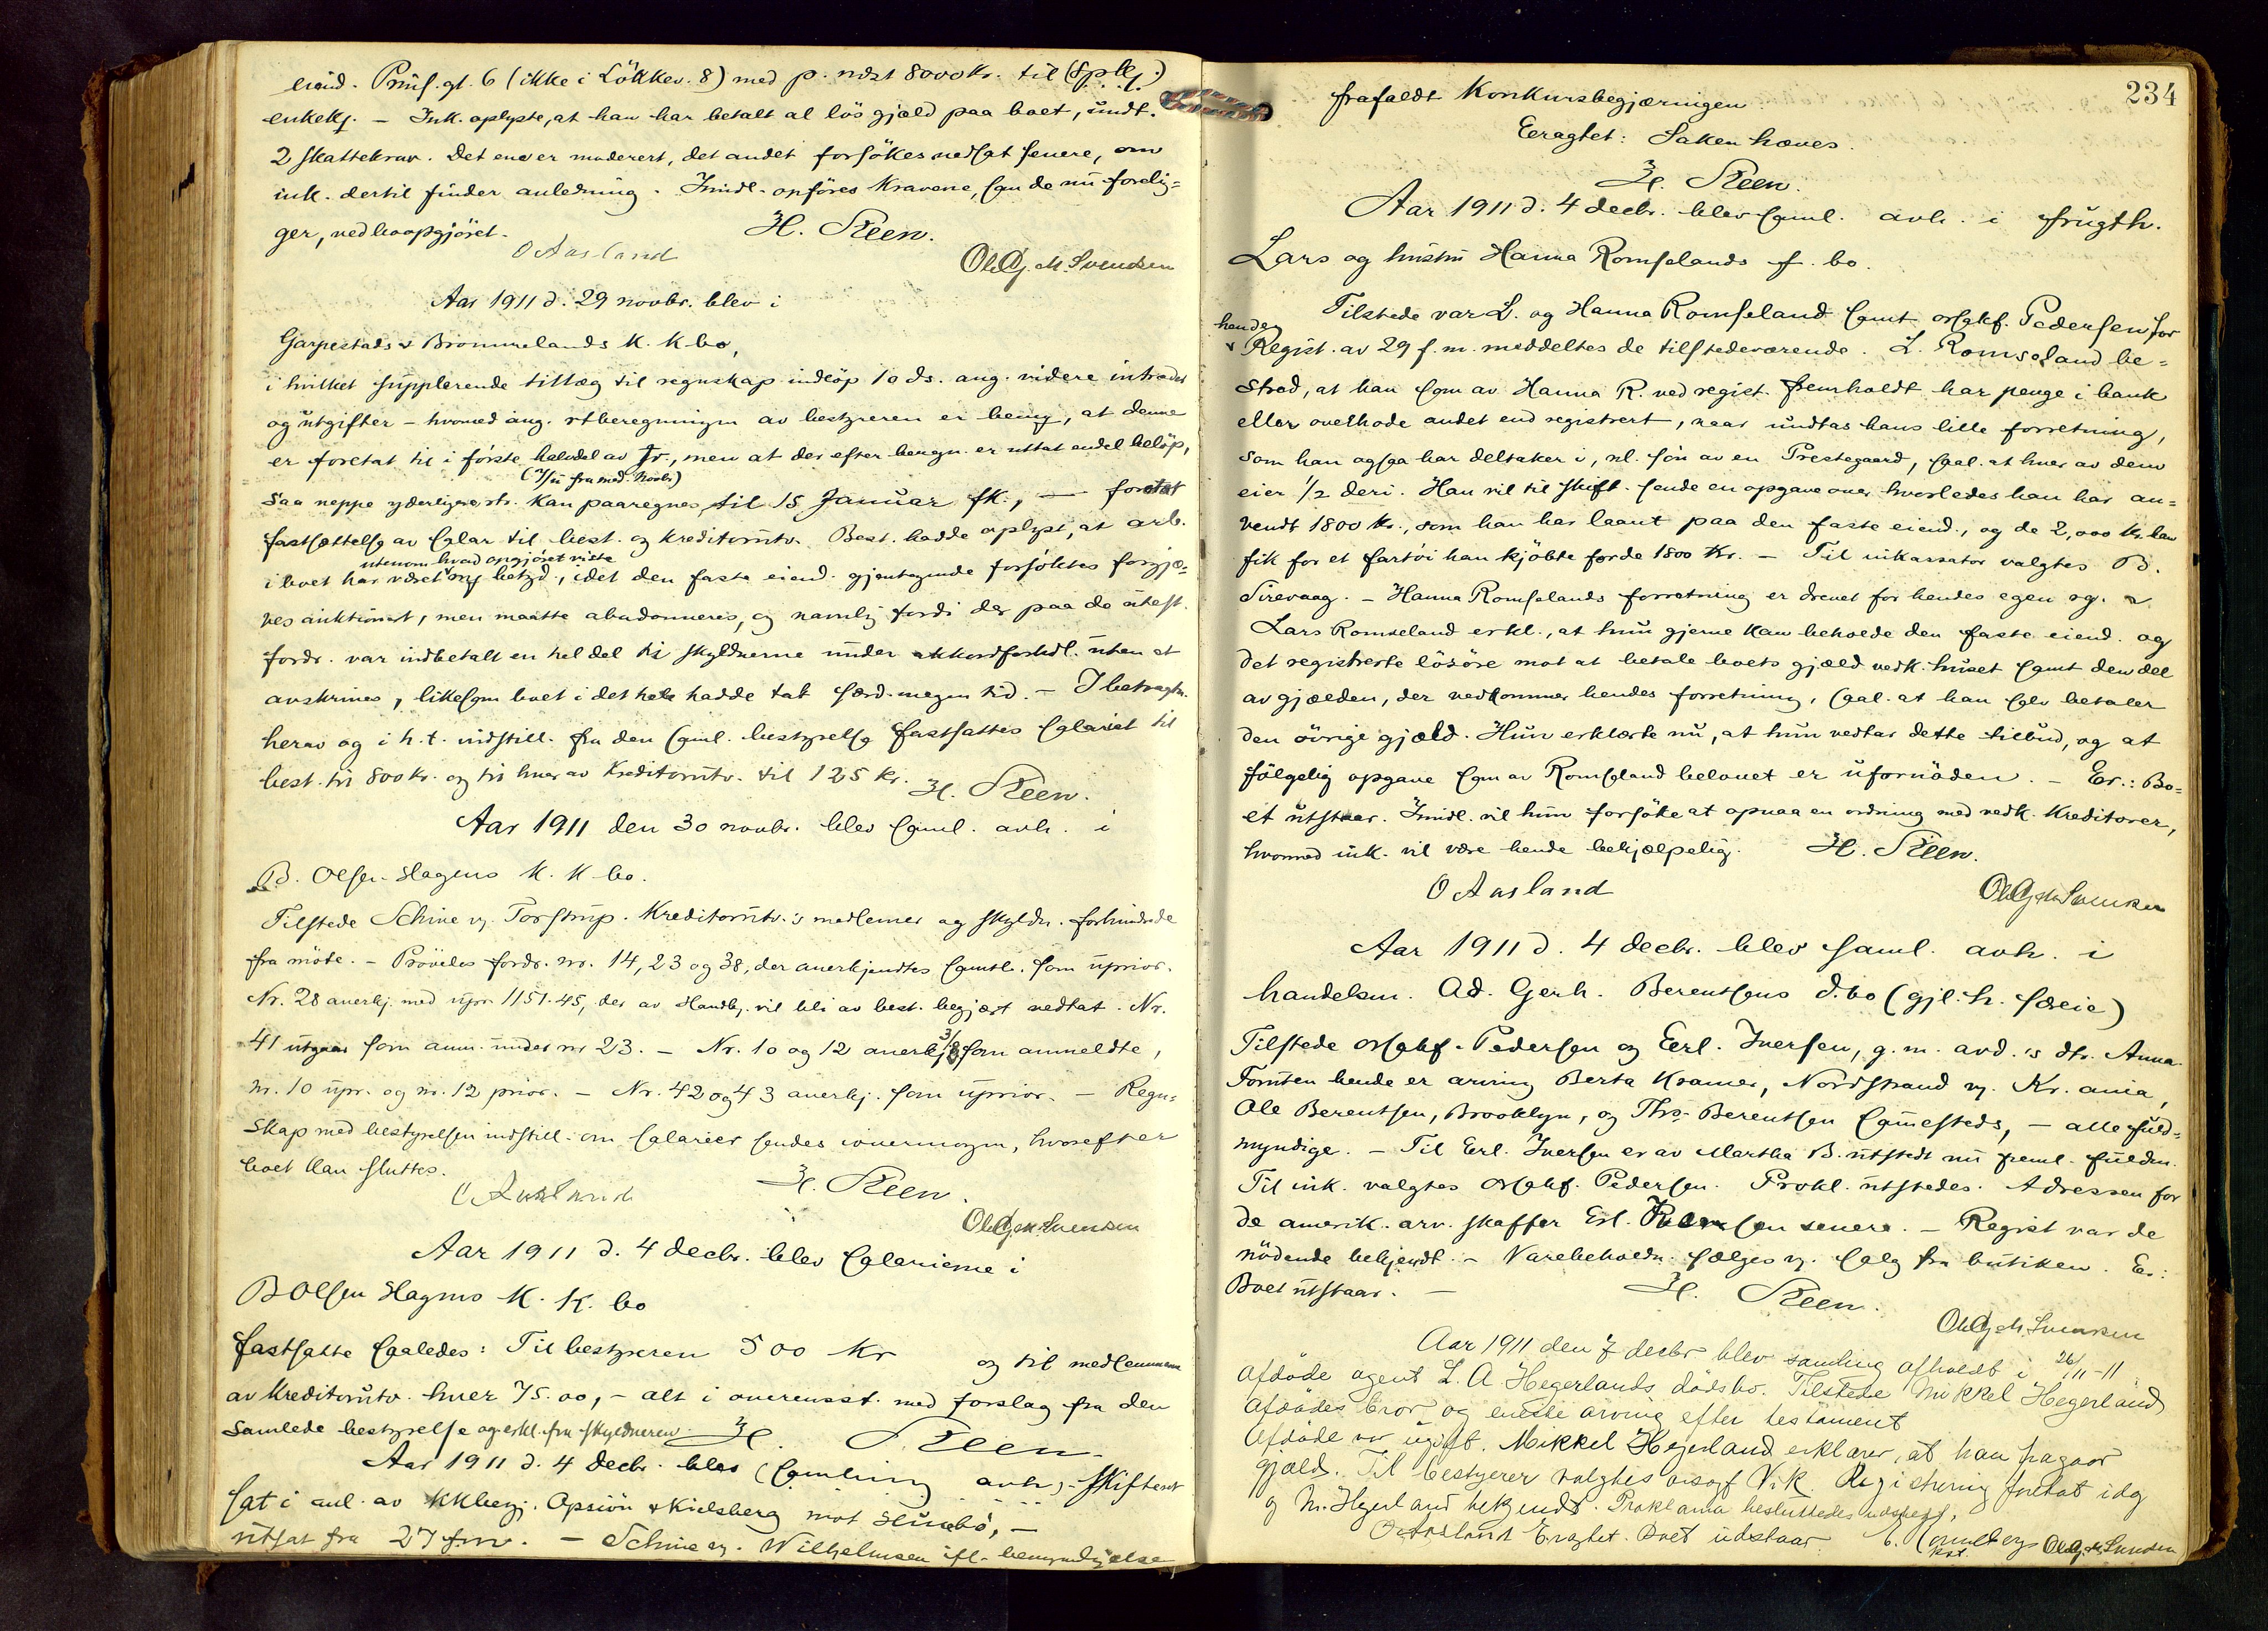 eiend. Prins. gt. 6 (ikke i Lökkev. 8) med p. rest 8000 Kr. til
enkekj. – Ink. oplyste, at han har betalt al lös gjæld paa boet, undt.
2 skattekrav. Det ene er moderert, det andet forsökes nedsat senere, om
ink. dertil finder anledning. Imidl. opföres Kravene, som de nu forelig=
ger, ved boopgjöret.
O Aasland H. Steen. Ole G. M. Svendsen
Aar 1911 d. 29 novbr. blev i
Garpestads & Brommelands K. K bo,
i hvilket supplerende tillæg til regnskap indlöp 10 ds. ang. videre intrader
og utgifter – hvorved ang. rtberegningen av bestyreren er bemg, at denne
er foretat til i förste halvdel av Jr., men at der efter beregn. er uttat endel belöp,
(7/12 fra med. novbr)
saa neppe yderligere rtr. kan paaregnes til 15 Januar fk., – foretat
fastsættelse av salar til best. og kreditorutv. Best. hadde oplyst, at arb.
utenom hvad opgjöret viste
i boet har været betyd., idet den faste eiend. gjentagende forsöktes forgjæ=
ves auktionert, men maatte abandonneres, og navnlig fordi der paa de utest.
fordr. var indbetalt en hel del til skyldnerne under akkordforhdl. uten at
avskrives, likesom boet i det hele hadde tat særd. megen tid. – I betragtn.
herav og i h. t. indstill. fra den saml. bestyrelse fastsattes salariet til
best. til 800 kr. og til hver av Kreditorutv. til 125 Kr. H. Steen.
Aar 1911 den 30 novbr. blev saml. avh. i
B. Olsen-Hagens K. K bo.
Tilstede Schive v. Torstrup. Kreditorutv.'s medlemer og skyldn. forhindrede
fra möte. – Prövedes fordr. nr. 14, 23 og 38, der anerkjendtes samtl. som uprior.
Nr. 28 anerkj. med upr. 1151.45, der av Handb. vil bli av best. begjært vedtat. Nr.
41 utgaar som anm. under nr 23. – Nr. 10 og 12 anerkj. som anmeldte,
nr. 10 upr. og nr. 12 prior. – Nr. 42 og 43 anerkj. som uprior. – Regn=
skap med bestyrelsen indstill. om salarier sendes iovermorgen, hvorefter
boet kan sluttes.
O Aasland H. Steen.
Ole G. M. Svendsen
Aar 1911 d. 4 decbr. blev salarierne i
B Olsen Hagens K. K. bo
fastsatte saaledes: Til bestyreren 500 kr og til medlemmerne
av Kreditorutv. hver 75.00, – alt i overensst. med forslag fra den
samlede bestyrelse og erkl. fra skyldneren. H. Steen
Aar 1911 d. 4 decbr. blev samling avh. i Skifteret
sat i anl. av KKbegj. Opsiön & Kielsberg mot Hunbö, –
utsat fra 27 f.m. – Schive v. Wilhelmsen ifl. bemyndigelse
234
frafaldt Konkursbegjæringen.
Eeragtet: Saken hæves.
H. Steen.
Aar 1911 d. 4 decbr. blev saml. avh. i frugth.
Lars og hustru Hanna Romselands f. bo.
Tilstede var L. og Hanna Romseland samt orsakf. Pedersen for
hende.
Regist. av 29 f. m. meddeltes de tilstedeværende. L. Romseland be=
stred, at han som av Hanna R. ved regist. fremholdt har penge i bank
eller overhode andet end registrert, naar undtas hans lille forretning,
som han ogsaa har deltaker i, nl. sön av en Prestegaard, saal. at hver av dem
eier 1/2 deri. Han vil til skift. sende en opgave over hvorledes han har an=
vendt 1800 kr., som han har laant paa den faste eiend., og de 2,000 kr. han
fik for et fartöi han kjöbte for de 1800 Kr. – Til inkassator valgtes B.
Sirevaag. – Hanna Romselands forretning er drevet for hendes egen rg.
Lars Romseland erkl., at hun gjerne kan beholde den faste eiend. og
det registrerte lösöre mot at betale boets gjæld vedk. huset samt den del
av gjælden, der vedkommer hendes forretning, saal. at han selv betaler
den övrige gjæld. Hun erklærte nu, at hun vedtar dette tilbud, og at
fölgelig opgave som av Romseland belovet er ufornöden. – Er.: Bo=
et utstaar. Imidl. vil hun forsöke at opnaa en ordning med vedk. Kreditorer,
hvorved ink. vil være hende behjælpelig. H. Steen.
O Aasland Ole G. M. Svendsen
Aar 1911 d. 4 decbr. blev saml. avh. i
handelsm. Ad. Gerh. Berentsens d. bo (gjl. h. særeie)
Tilstede orsakf. Pedersen og Erl. Iversen, g. m. avd.'s dtr. Anna.
Foruten hende er arving Berta Kramer, Nordstrand v. Kr.ania,
Ole Berentsen, Brooklyn, og Ths. Berentsen samesteds, – alle fuld=
myndige. – Til Erl. Iversen er av Martha B. utstedt nu freml. fuldm.
Til ink. valgtes orsakf. Pedersen. Prokl. utstedes. Adressen for
de amerik. arv. skaffer Erl. Iversen senere. – Regist var de
mödende bekjendt. – Varebeholdn. sælges v. salg fra butiken. Er:
Boet utstaar. – H. Steen.
Ole G. M. Svendsen
Aar 1911 den 7 decbr blev samling afholdt i 26/11-11
afdöde agent L. A Hegerlands dödsbo. Tilstede Mikkel Hegerland
afdödes bror og eneste arving efter testament
Afdöde var ugift. Mikkel Hegerland erklærer, at han fragaar
gjæld. Til bestyerer valgtes orsagf Vik. Registrering foretat idag
og M. Hegerland bekjendt. Proklama besluttedes udstedt.
O Aasland Eragtet. Boet udstaar. Ole G. M. Svendsen
kst.